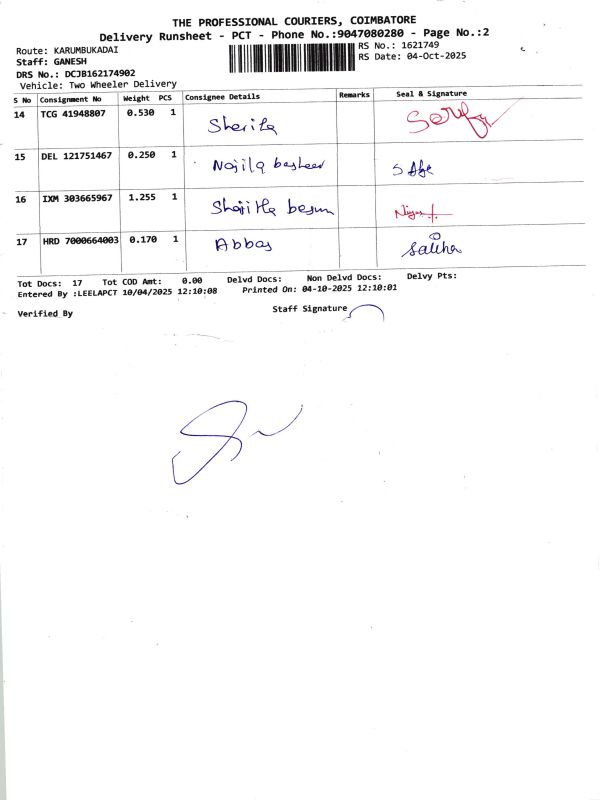 THE PROFESSIONAL COURIERS, COIMBATORE
Delivery Runsheet - PCT - Phone No.:9047080280 - Page No.:2
Route: KARUMBUKADAI
RS No.: 1621749
Staff: GANESH
RS Date: 04-Oct-2025
DRS No.: DCJB162174902
Vehicle: Two Wheeler Delivery
S No Consignment No Weight PCS Consignee Details Remarks Seal & Signature
14 TCG 41948807 0.530 1 Sherifa
15 DEL 121751467 0.250 1 Najila basheer
16 IXM 303665967 1.255 1
17 HRD 7000664003 0.170 1 Abbas Saliha
Tot Docs: 17 Tot COD Amt: 0.00 Delvd Docs: Non Delvd Docs: Delvy Pts:
Entered By :LEELAPCT 10/04/2025 12:10:08 Printed On: 04-10-2025 12:10:01
Verified By Staff Signature